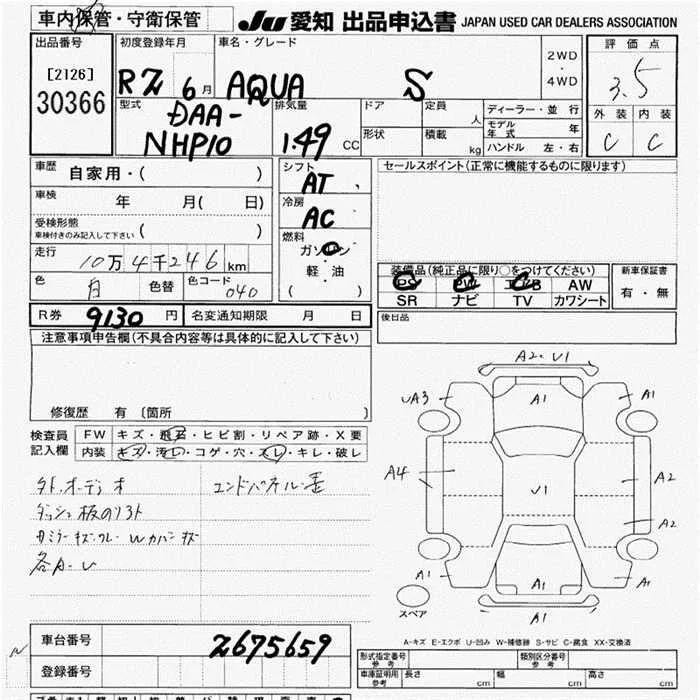 車内保管・守衛保管
JU 愛知 出品申込書 JAPAN USED CAR DEALERS ASSOCIATION
出品番号
[2126]
30366
初度登録年月
R2 6月
車名・グレード
AQUA S
2WD
・
4WD
評価点
3.5
外装 内装
C C
型式
DAA-
NHP10
排気量
1.49 CC
ドア
定員
人
形状
積載
kg
ディーラー・並行
モデル年式 年
ハンドル 左・右
車歴 自家用・( )
車検 年 月( 日)
受検形態
車検付きのみ記入して下さい ( )
走行 10万4千246km
色 白 色替 色コード 040
シフト
AT
冷房
AC
燃料
ガソリン
・
軽・油
( )
セールスポイント(正常に機能するものに限ります)
装備品(純正品に限り○をつけてください)
PS PW エアB AW
SR ナビ TV カワシート
新車保証書
有・無
後日品
R券 9130円 名変通知期限 月 日
注意事項申告欄(不具合内容等は具体的に記入して下さい)
修復歴 有〔箇所 〕
検査員
記入欄
FW キズ・飛石・ヒビ割・リペア跡・X要
内装 キズ・汚レ・コゲ・穴・スレ・キレ・破レ
外.オーディオ
ダッシュ板のリフト
各A-U
A2・U1
UA3
A1
A1
A4
U1
A2
A2
A1
A1
A1
A1
スペア
A-キズ E-エクボ U-凹み W-補修跡 S-サビ C-腐食 XX-交換済
車台番号 2675659
登録番号
形式指定番号
参考
類別区分番号
参考
車庫証明用
参考
長さ cm 幅 cm 高さ cm